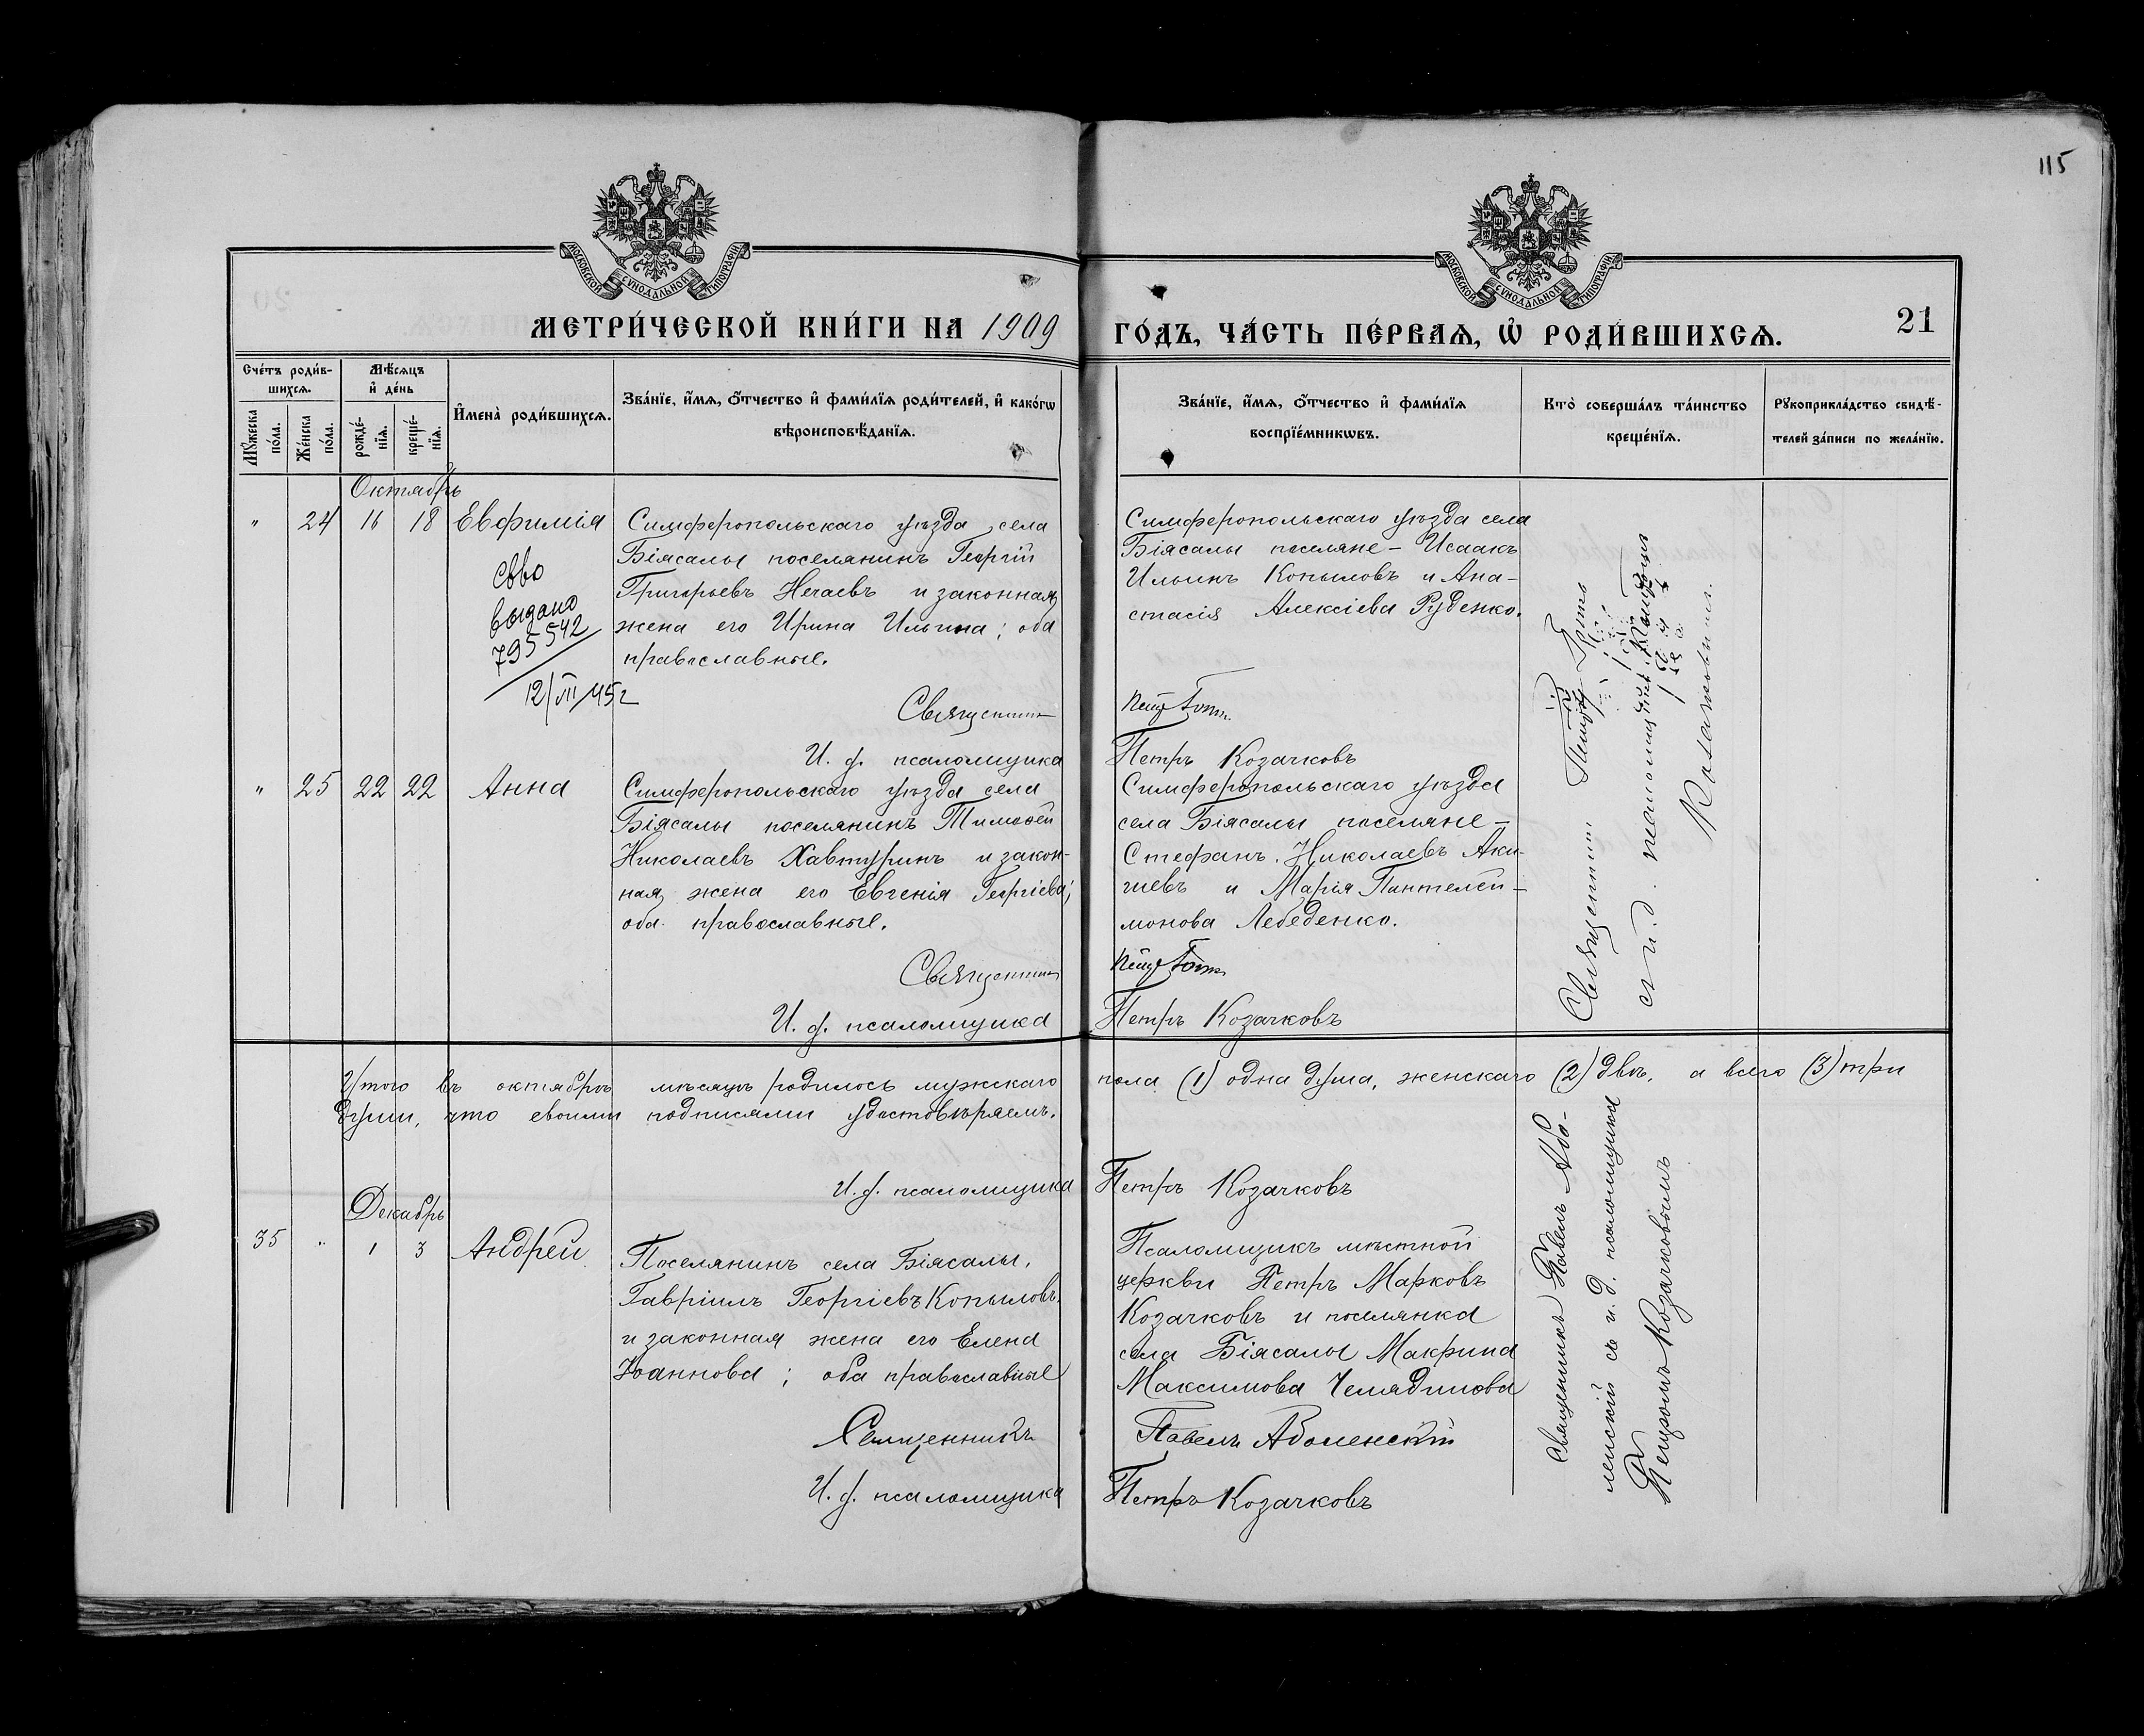 115
МОСКОВСКОЙ СѴНОДАЛЬНОЙ ТИПОГРАФІИ
МОСКОВСКОЙ СѴНОДАЛЬНОЙ ТИПОГРАФІИ
МЕТРИ́ЧЕСКОЙ КНИ́ГИ НА 1909
ГО́ДЪ, ЧА́СТЬ ПЕ́РВАѦ, Ѡ҆ РОДИ́ВШИХСѦ.
21
Сче́тъ роди́в-
шихсѧ.
Мѹ́жеска
по́ла.
Же́нска
по́ла.
Мѣ́сѧцъ
и҆ де́нь
рожде́-
нїѧ.
креще́-
нїѧ.
И҆мена̀ роди́вшихсѧ.
Зва́нїе, и҆́мѧ, ѻ҆́тчество и҆ фами́лїѧ роди́телей, и҆ како́гѡ
вѣроисповѣ́данїѧ.
Зва́нїе, и҆́мѧ, ѻ҆́тчество и҆ фами́лїѧ
воспрїе́мникѡвъ.
Кто̀ соверша́лъ та́инство
креще́нїѧ.
Рѹкоприкла́дство свидѣ́-
телей за́писи по жела́нїю.
Октябрь
" 24 16 18 Евфимія
Свво
выдано
795542
12/VII/45г
Симферопольскаго уѣзда села
Біясалы поселянинъ Георгій
Григорьевъ Нечаевъ и законная
жена его Ирина Ильина; оба
православные.
Священникъ
И. д. псаломщика
Симферопольскаго уѣзда села
Біясалы поселяне - Исаакъ
Ильинъ Копыловъ и Ана-
стасія Алексіева Руденко.
Петръ Готт
Петръ Козачковъ
" 25 22 22 Анна
Симферопольскаго уѣзда села
Біясалы поселянинъ Тимоѳей
Николаевъ Хавтуринъ и закон-
ная жена его Евгенія Георгіева;
оба православные.
Священникъ
И. д. псаломщика
Симферопольскаго уѣзда
села Біясалы поселяне -
Стефанъ Николаевъ Аки-
шевъ и Марія Пантелей-
монова Лебеденко.
Петръ Готт
Петръ Козачковъ
Священникъ Петръ Готтъ
съ и. д. псаломщика
Козачковымъ.
Итого въ октябрѣ мѣсяцѣ родилось мужскаго пола (1) одна душа, женскаго (2) двѣ, а всего (3) три
души, что своими подписями удостовѣряемъ.
И. д. псаломщика Петръ Козачковъ
Декабрь
35 " 1 3 Андрей
Поселянинъ села Біясалы,
Гавріилъ Георгіевъ Копыловъ,
и законная жена его Елена
Іоаннова; оба православные
Священникъ
И. д. псаломщика
Псаломщикъ мѣстной
церкви Петръ Марковъ
Козачковъ и поселянка
села Біясалы Макрина
Максимова Челядинова
Павелъ Аболенскій
Петръ Козачковъ
Священникъ Павелъ Або-
ленскій съ и. д. псаломщика
Петромъ Козачковымъ